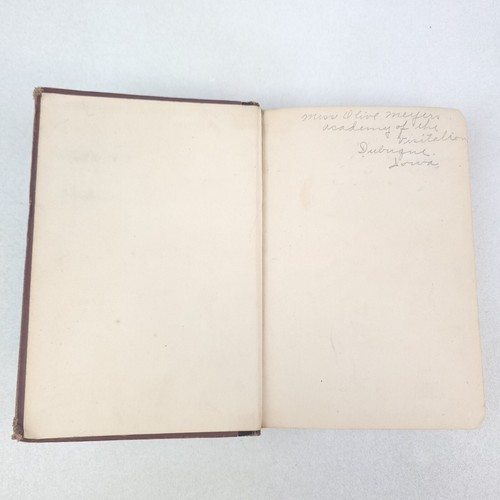 Miss Olive Meyers
academy of the
Visitation
Dubuque
Iowa